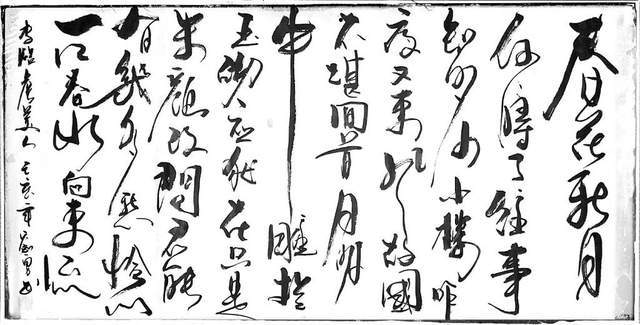 春花秋月
何時了往事
知多少小樓昨
夜又東風故國
不堪回首月明
中雕欄
玉砌應猶在只是
朱顏改問君能
有幾多愁恰似
一江春水向東流
李煜虞美人